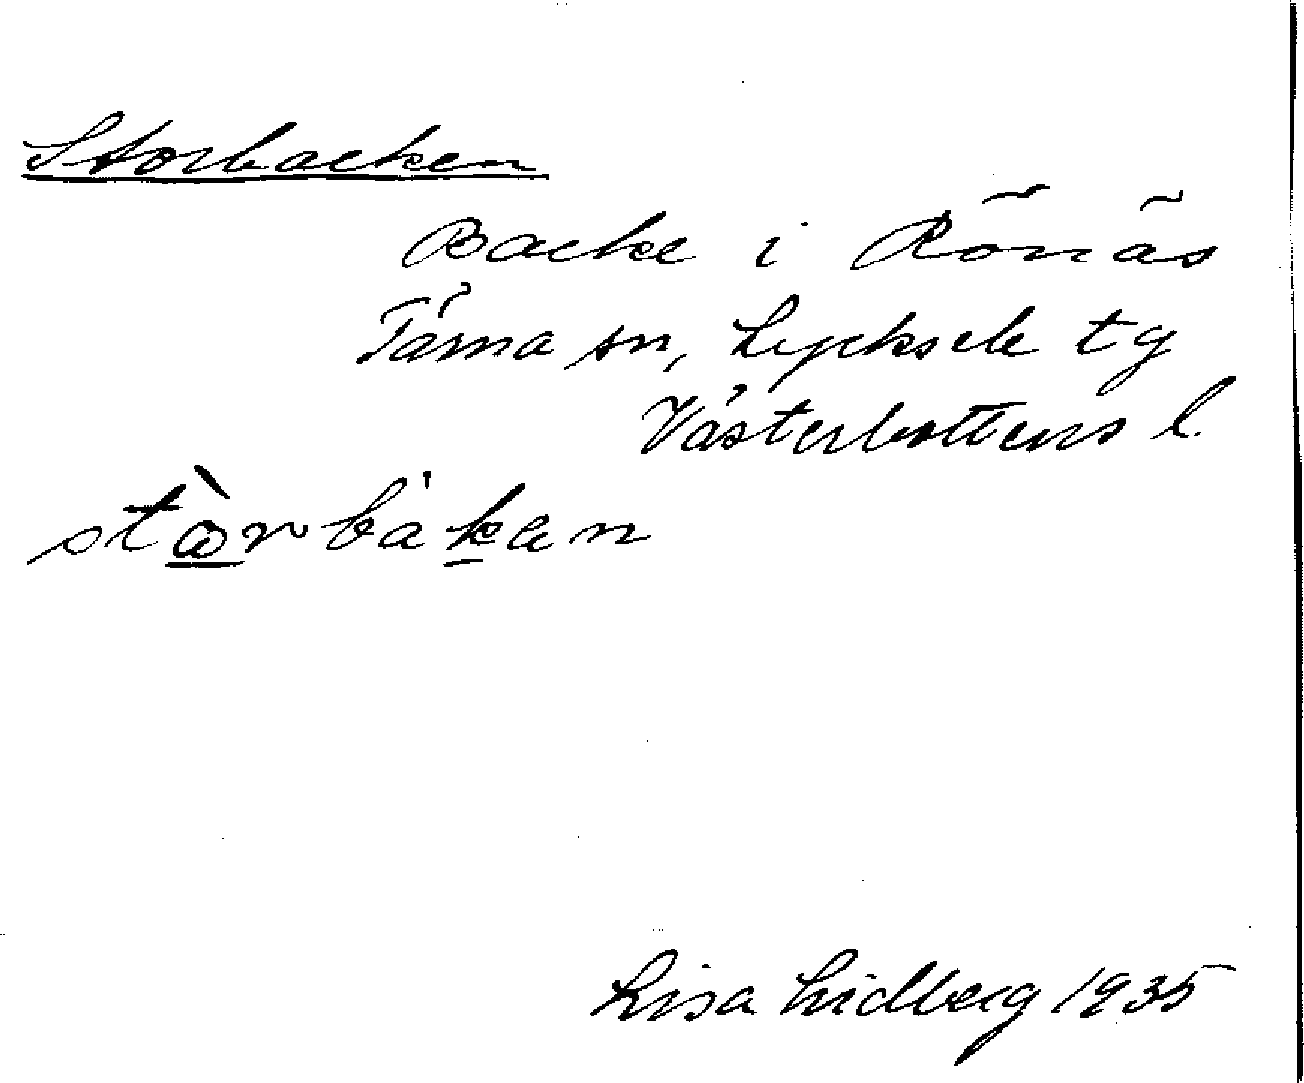 Storbacken
Backe i Rönäs
Tärna sn, Lycksele tg
Västerbottens l.
stòrbakan
Lisa Lidberg 1935